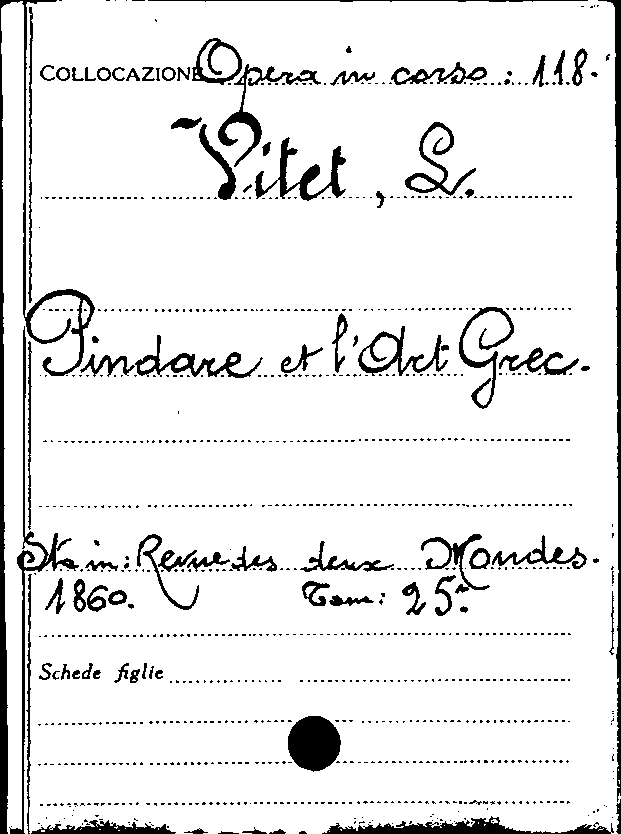 COLLOCAZIONE Opera in corso: 118.
Vitet, L.
Pindare et l'Art Grec.
Sta in: Revue des deux Mondes.
1860. Tom: 25.
Schede figlie